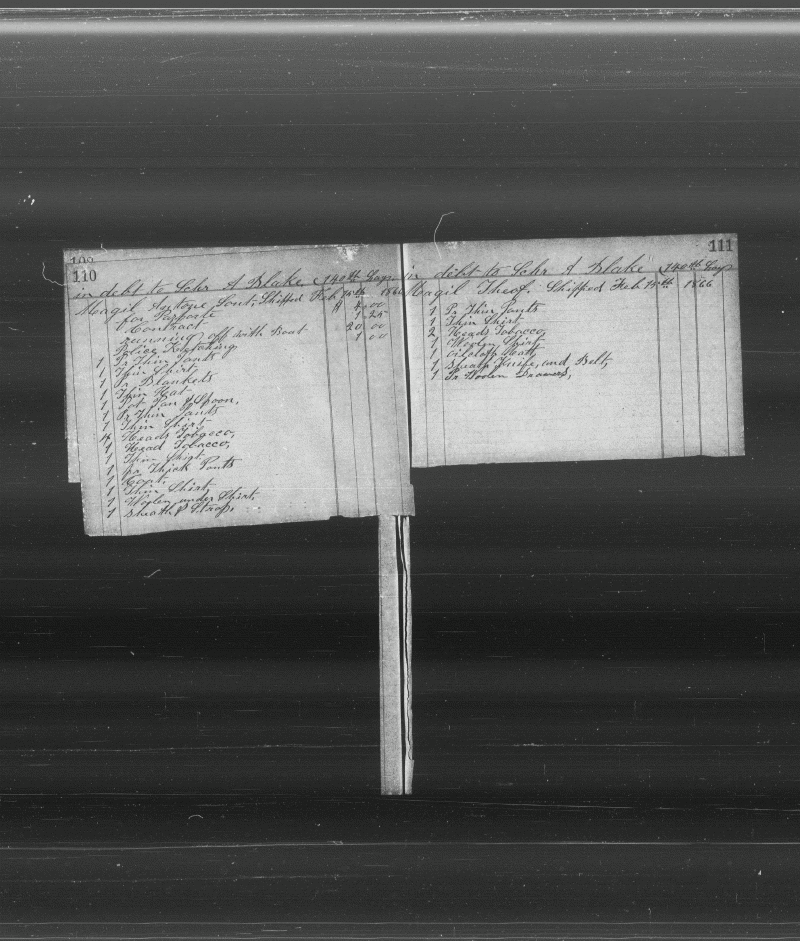 109
110
in debt to Schr A Blake 140th Lay
Magil Antone Cont, Shipped Feb 14th 1866
for Passporte $ 2 00
Contract 1 25
running off with Boat 20 00
Police Ketching 1 00
1 Pr Thin Pants
1 Thin Shirt
1 Pr Blankets
1 Thin Hat
1 Pot Pan & Spoon,
1 Pr Thin Pants
1 Thin Shirt
4 Heads Tobacco,
1 Head Tobacco,
1 Thin Shirt
1 pr Thick Pants
1 Coat
1 Thin Shirt,
1 Woolen under Shirt,
1 Sheath & Strap,
111
in debt to Schr A Blake 140th Lay
Magil Theof. Shipped Feb 14th 1866
1 Pr Thin Pants
1 Thin Shirt
2 Heads Tobacco,
1 Woolen Shirt
1 Oilcloth Coat,
1 Sheath Knife, and Belt,
1 Pr Woolen Drawers,